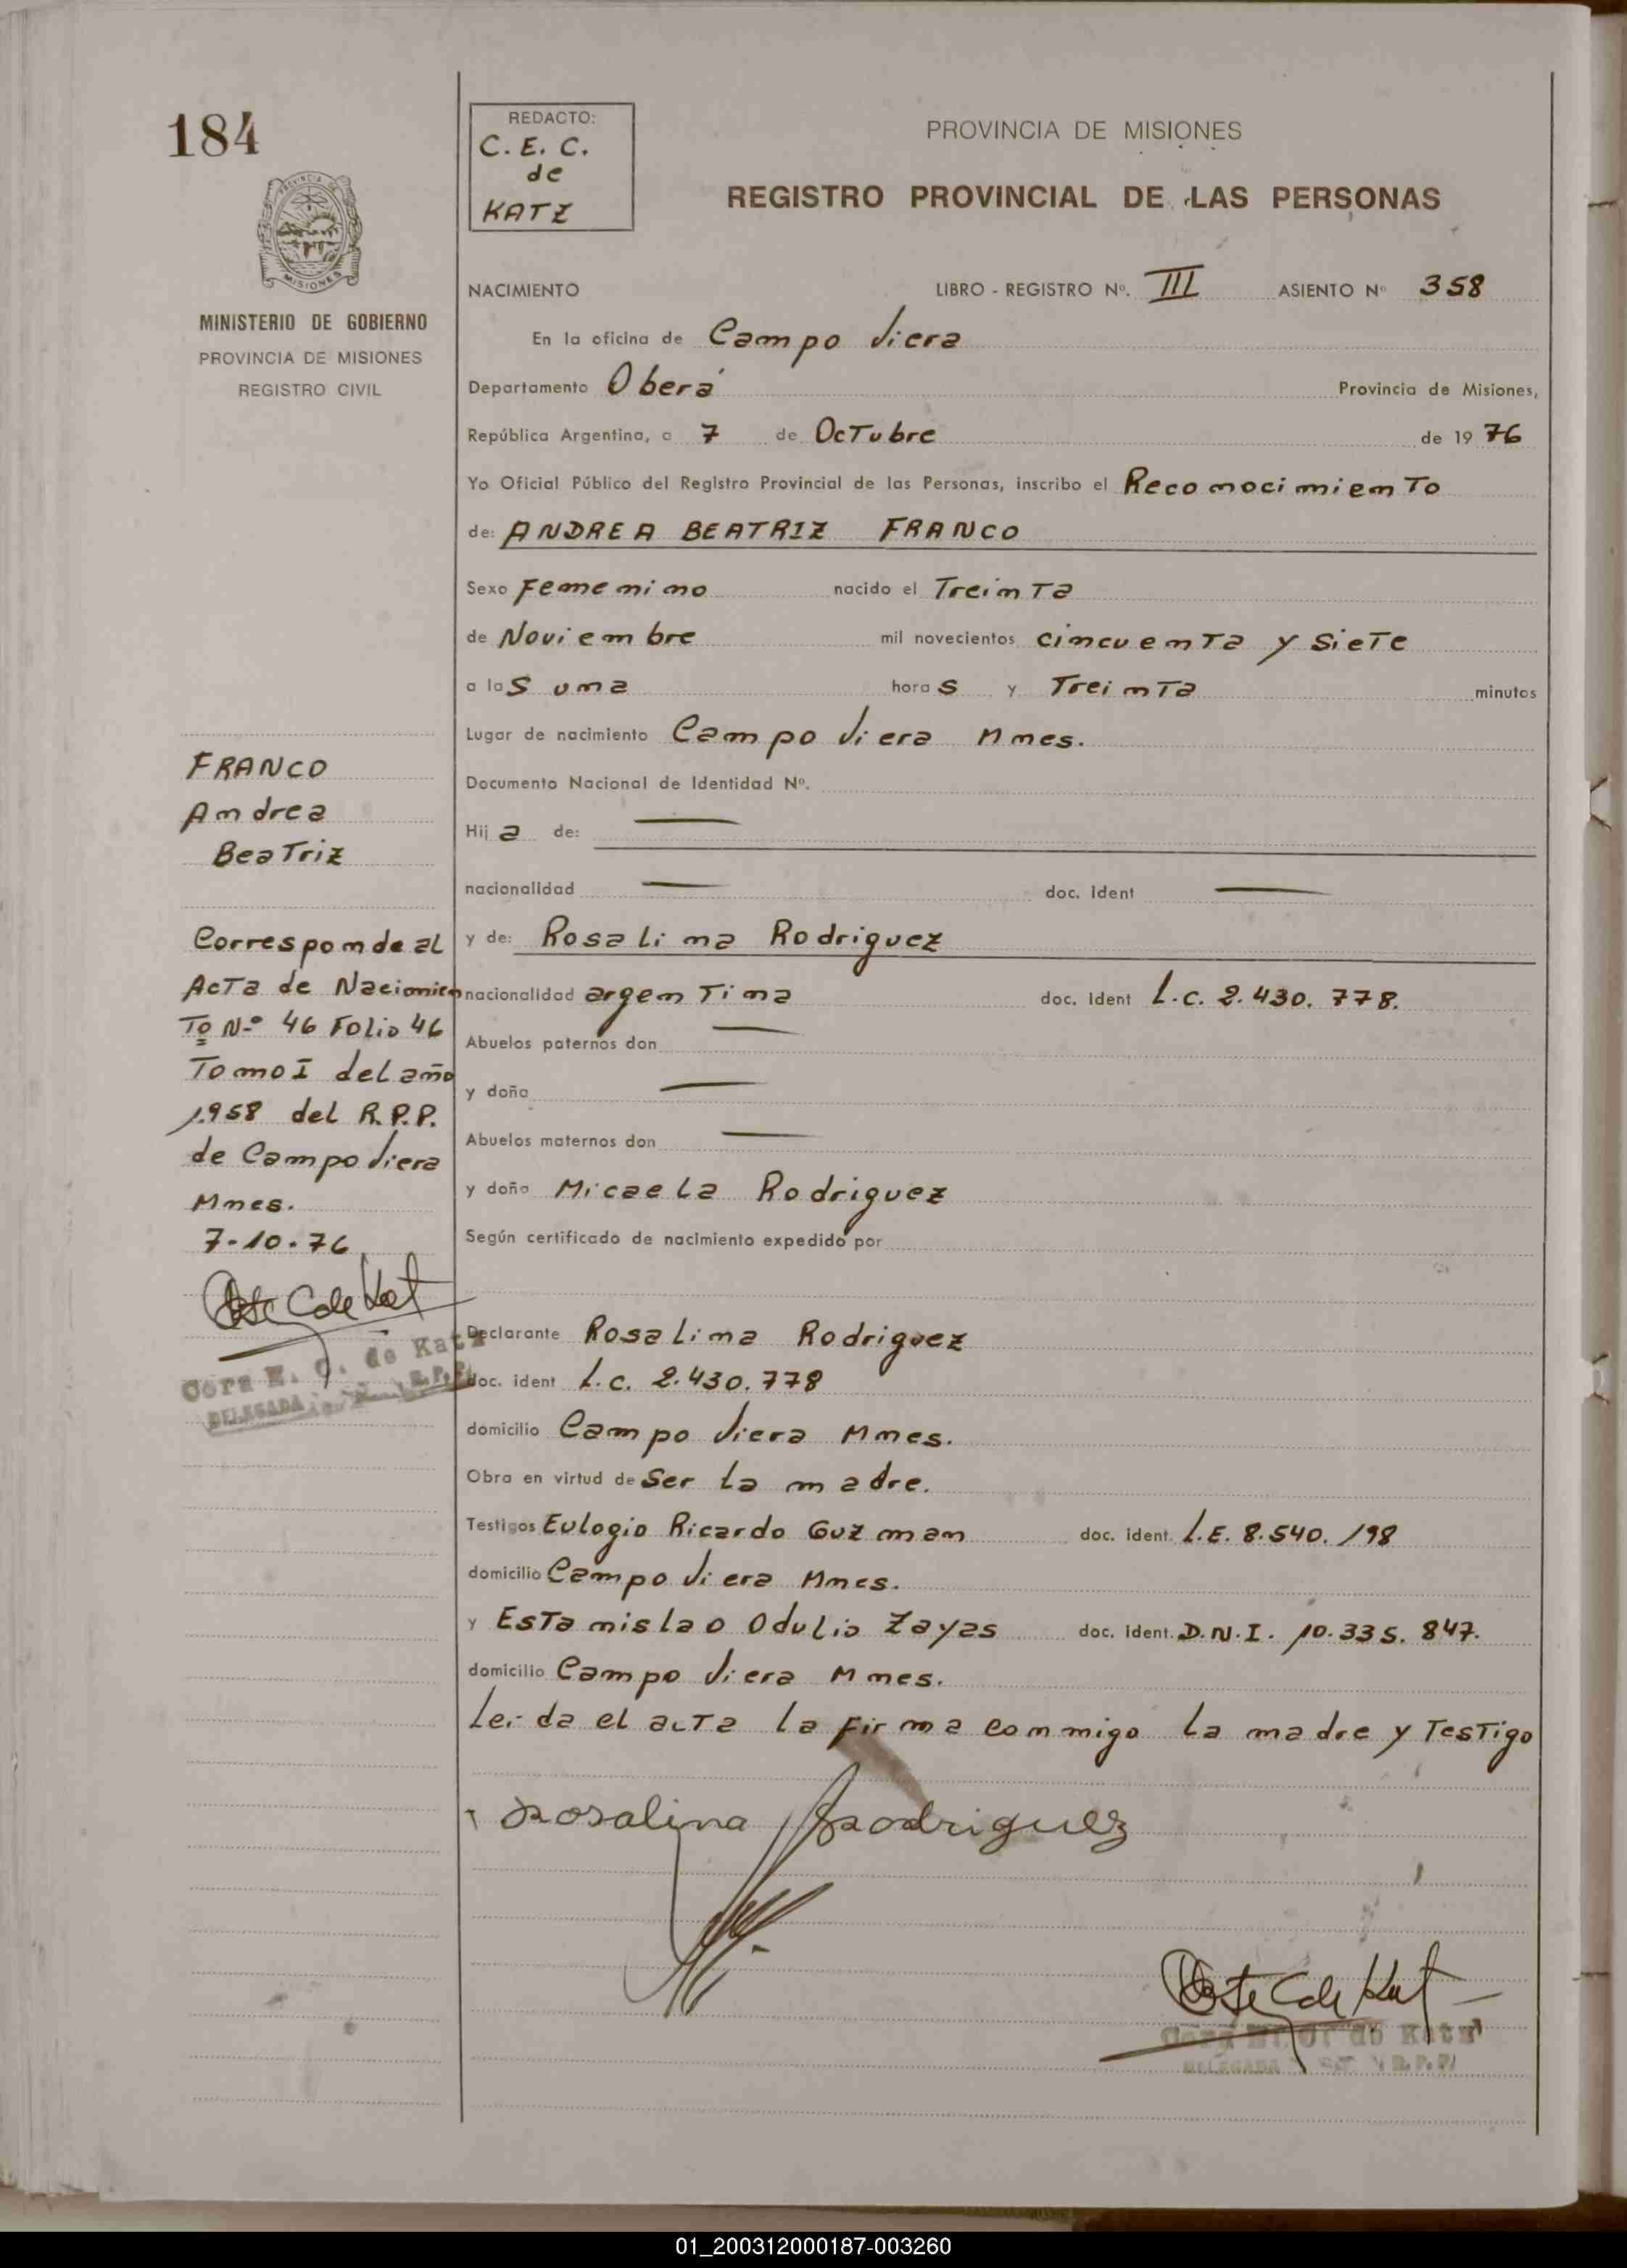 184
REDACTO:
C. E. C.
de
KATZ
PROVINCIA DE MISIONES
REGISTRO PROVINCIAL DE LAS PERSONAS
PROVINCIA DE
MISIONES
MINISTERIO DE GOBIERNO
PROVINCIA DE MISIONES
REGISTRO CIVIL
NACIMIENTO LIBRO - REGISTRO Nº. III ASIENTO Nº 358
En la oficina de Campo Viera
Departamento Oberá Provincia de Misiones,
República Argentina, a 7 de Octubre de 19 76
Yo Oficial Público del Registro Provincial de las Personas, inscribo el Reconocimiento
de: ANDREA BEATRIZ FRANCO
Sexo Femenino nacido el Treinta
de Noviembre mil novecientos cincuenta y siete
a las una horas y Treinta minutos
Lugar de nacimiento Campo Viera Mnes.
Documento Nacional de Identidad Nº.
Hija de: —
nacionalidad — doc. ident —
y de: Rosalina Rodriguez
nacionalidad argentina doc. ident L.C. 2.430.778.
Abuelos paternos don —
y doña —
Abuelos maternos don —
y doña Micaela Rodriguez
Según certificado de nacimiento expedido por
Declarante Rosalina Rodriguez
doc. ident L.C. 2.430.778
domicilio Campo Viera Mnes.
Obra en virtud de ser la madre.
Testigos Eulogio Ricardo Guzman doc. ident. L.E. 8.540.198
domicilio Campo Viera Mnes.
y Estanislao Odulio Zayas doc. ident. D.N.I. 10.335.847.
domicilio Campo Viera Mnes.
Leida el acta la firma conmigo la madre y Testigo
Rosalina Rodriguez
Cora E. C. de Katz
DELEGADA R.P.P.
FRANCO
Andrea
Beatriz
Corresponde al
Acta de Nacimien
To Nº 46 Folio 46
Tomo I del año
1958 del R.P.P.
de Campo Viera
Mnes.
7-10-76
Cora E. C. de Katz
DELEGADA R.P.P.
01_200312000187-003260